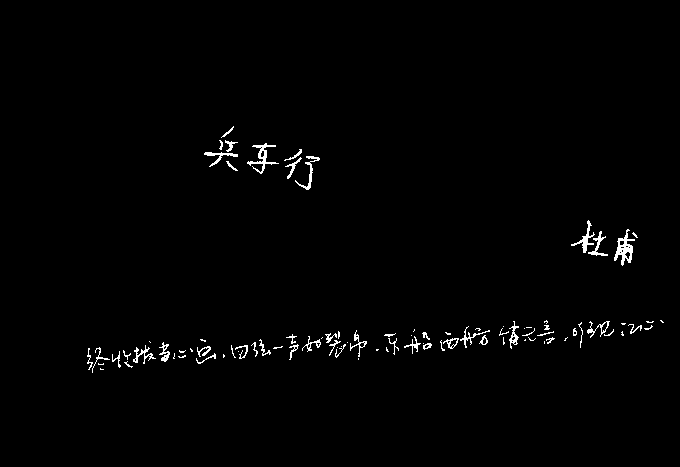 兵车行
杜甫
终收拨当心画,四弦一声如裂帛.东船西舫悄无言,唯见江心